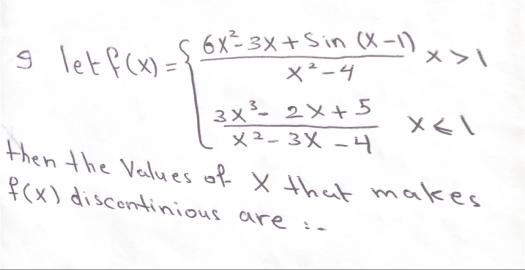 9 let f(x) = { 6x²-3x+Sin (x-1) / x²-4 x>1
3x³- 2x+5 / x²-3x-4 x≤1
then the Values of X that makes
f(x) discontinious are :-